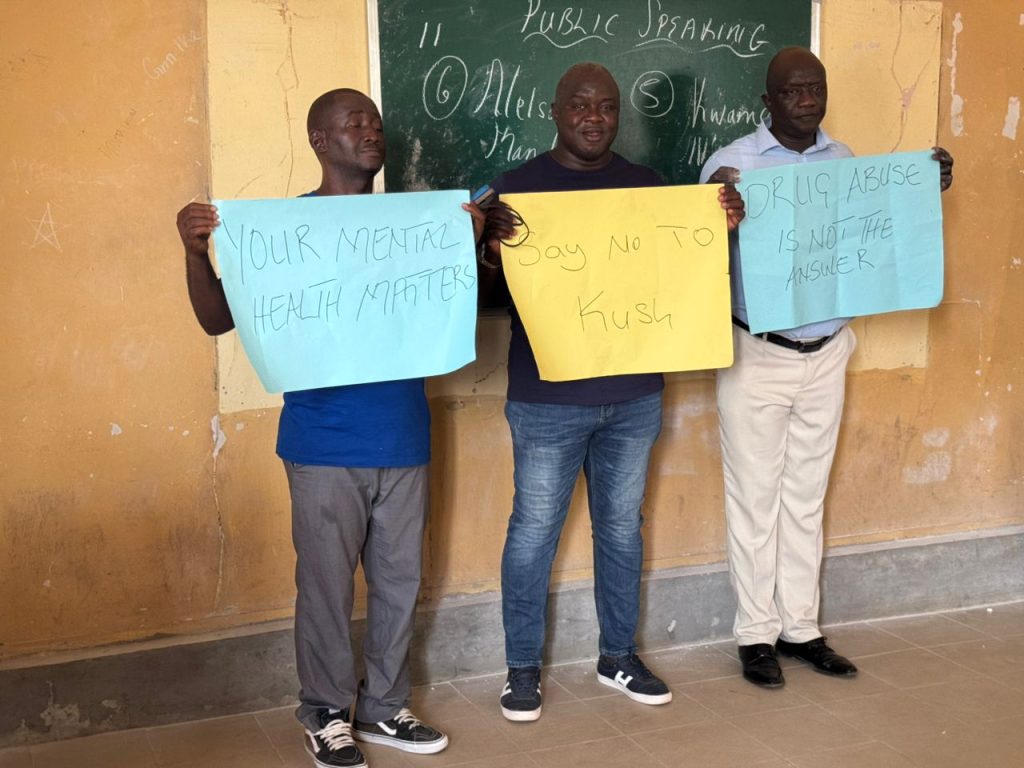 PUBLIC SPEAKING
11
6
5
Kwame
YOUR MENTAL
HEALTH MATTERS
Say No To
Kush
DRUG ABUSE
IS NOT THE
ANSWER